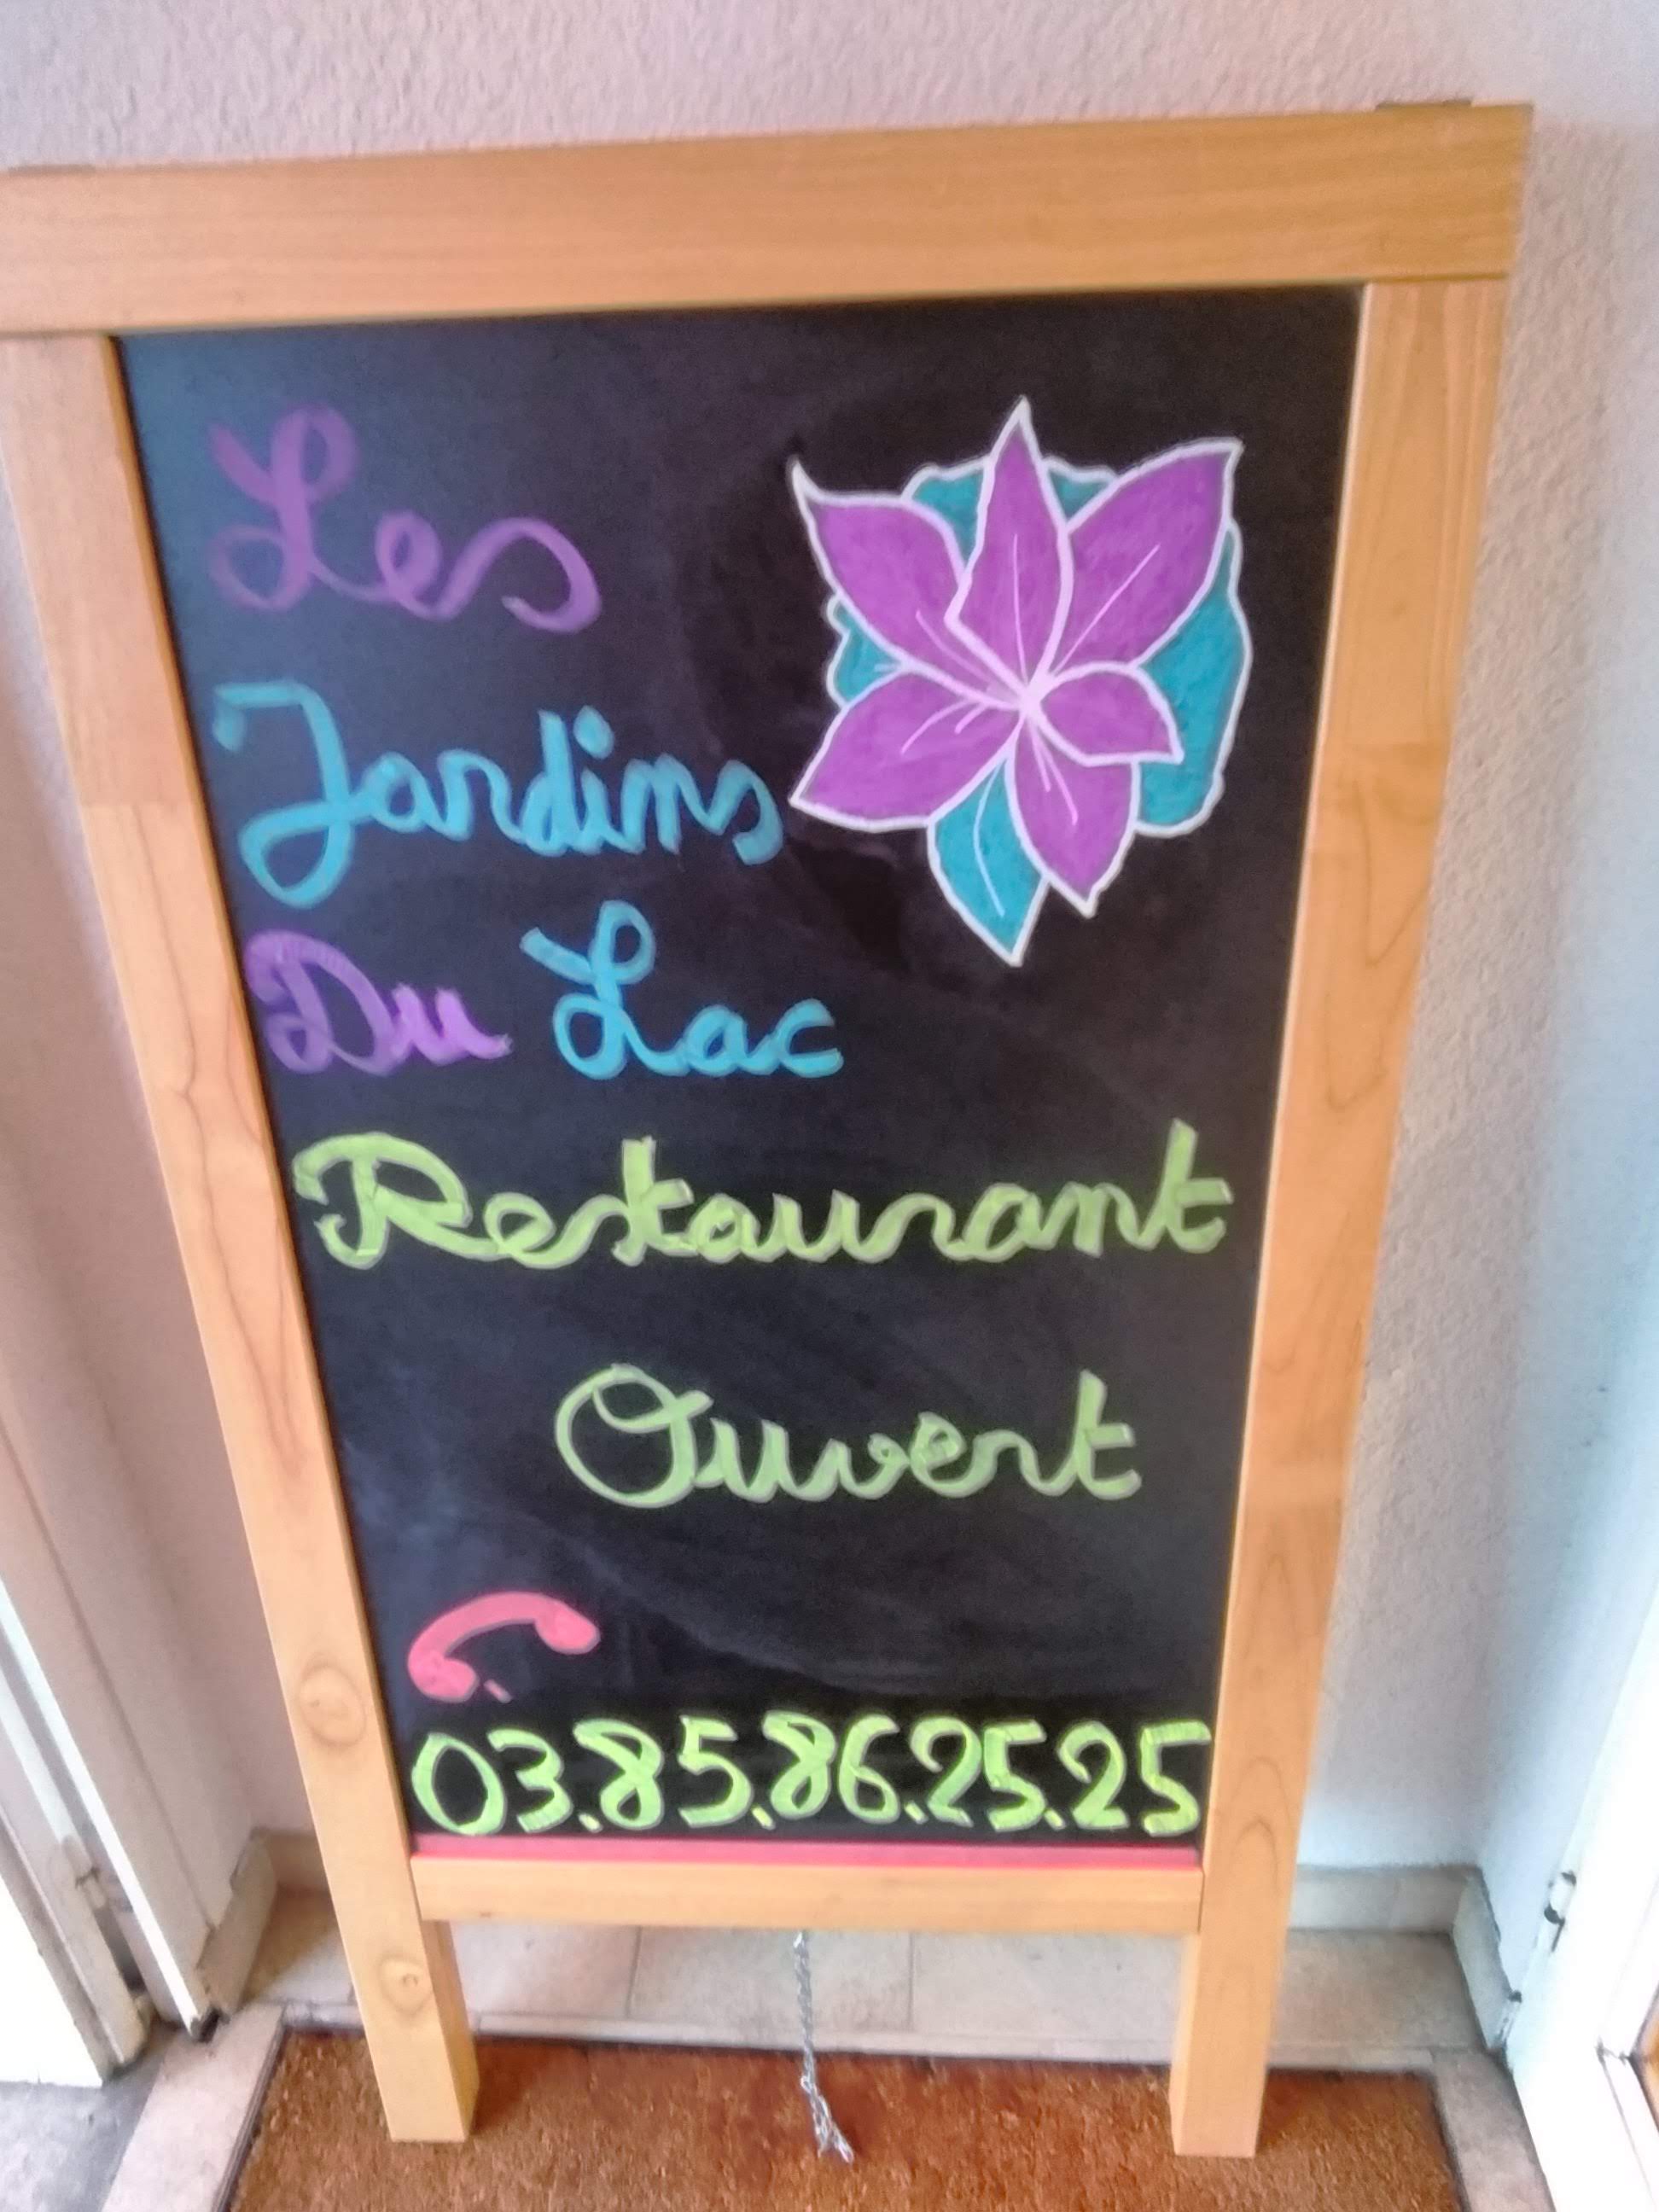 Les
Jardins
Du Lac
Restaurant
Ouvert
03.85.86.25.25